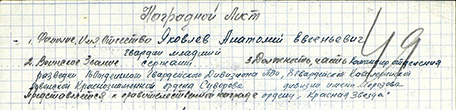 Наградной Лист
1. Фамилия, Имя Отчество Яковлев Анатолий Евгеньевич
гвардии младший
2. Воинское Звание сержант 3 Должность, часть командир отделения
разведки Гвардейского Дивизиона 3 Гвардейской Кавалерийской
Краснознаменной ордена Суворова дивизии имени
Представляется к правительственной награде ордену "Красная Звезда"
49